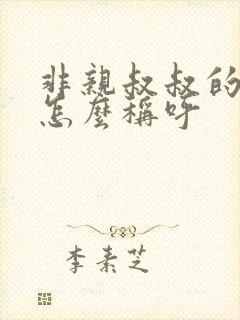 非親叔叔的
怎麼稱呼
李素芝